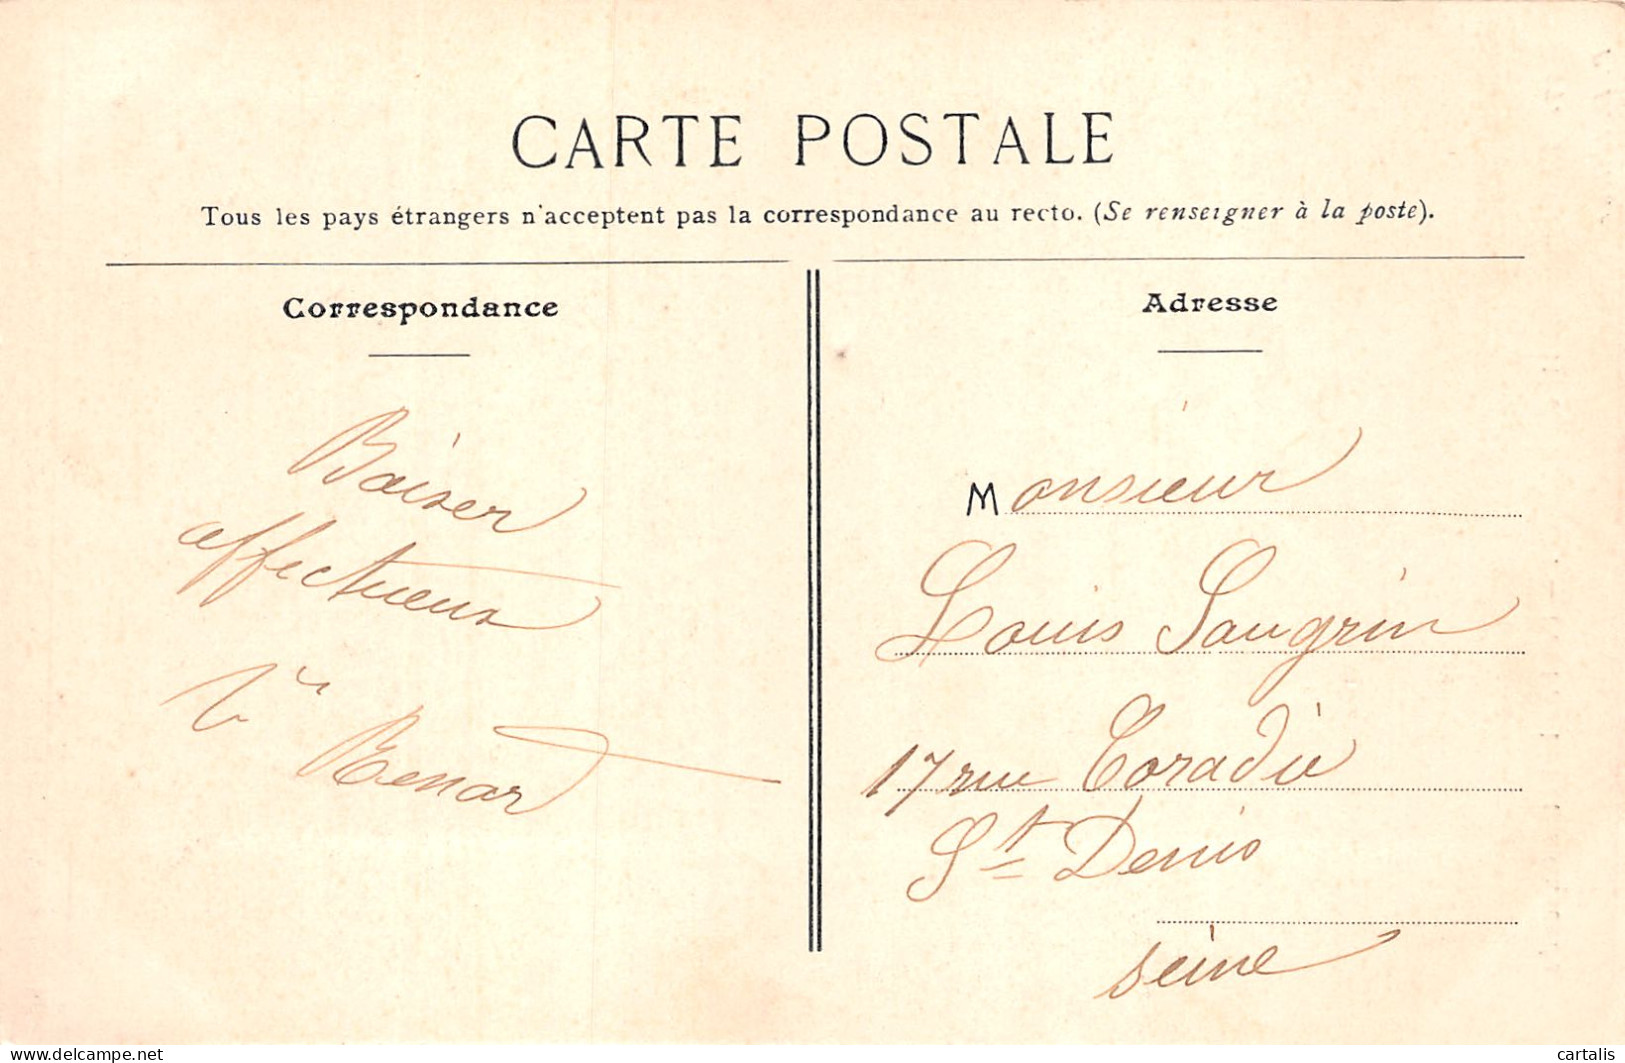 CARTE POSTALE
Tous les pays étrangers n'acceptent pas la correspondance au recto. (Se renseigner à la poste).
Correspondance
Baiser
affectueux
Vve
Renard
Adresse
Monsieur
Louis Saugrin
17 rue
St Denis
Seine
www.delcampe.net
cartalis